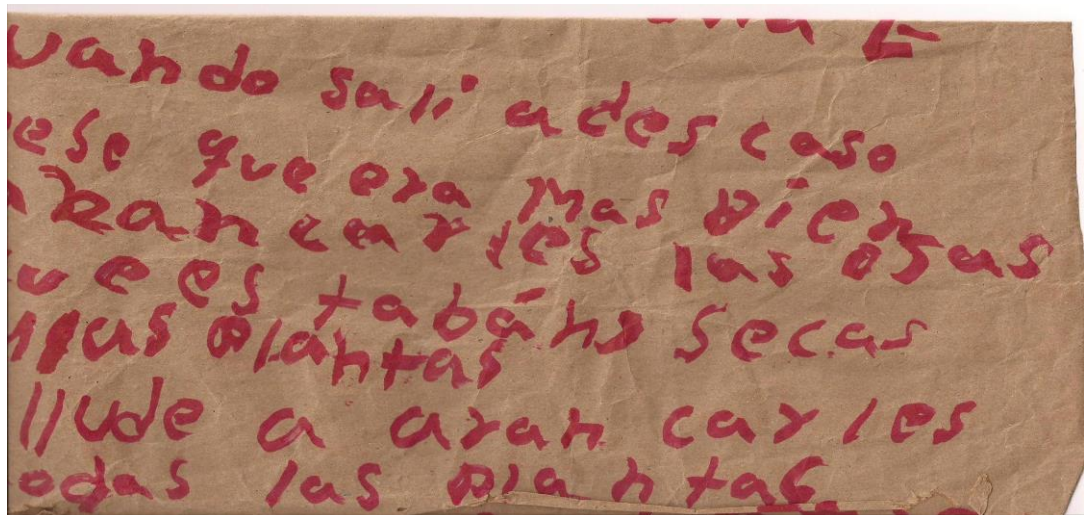 uando salí a des caso
ese que era mas vien
arancar les las ojas
ue es tabáns secas
unas plantas
llude a aran car les
odas las plantas